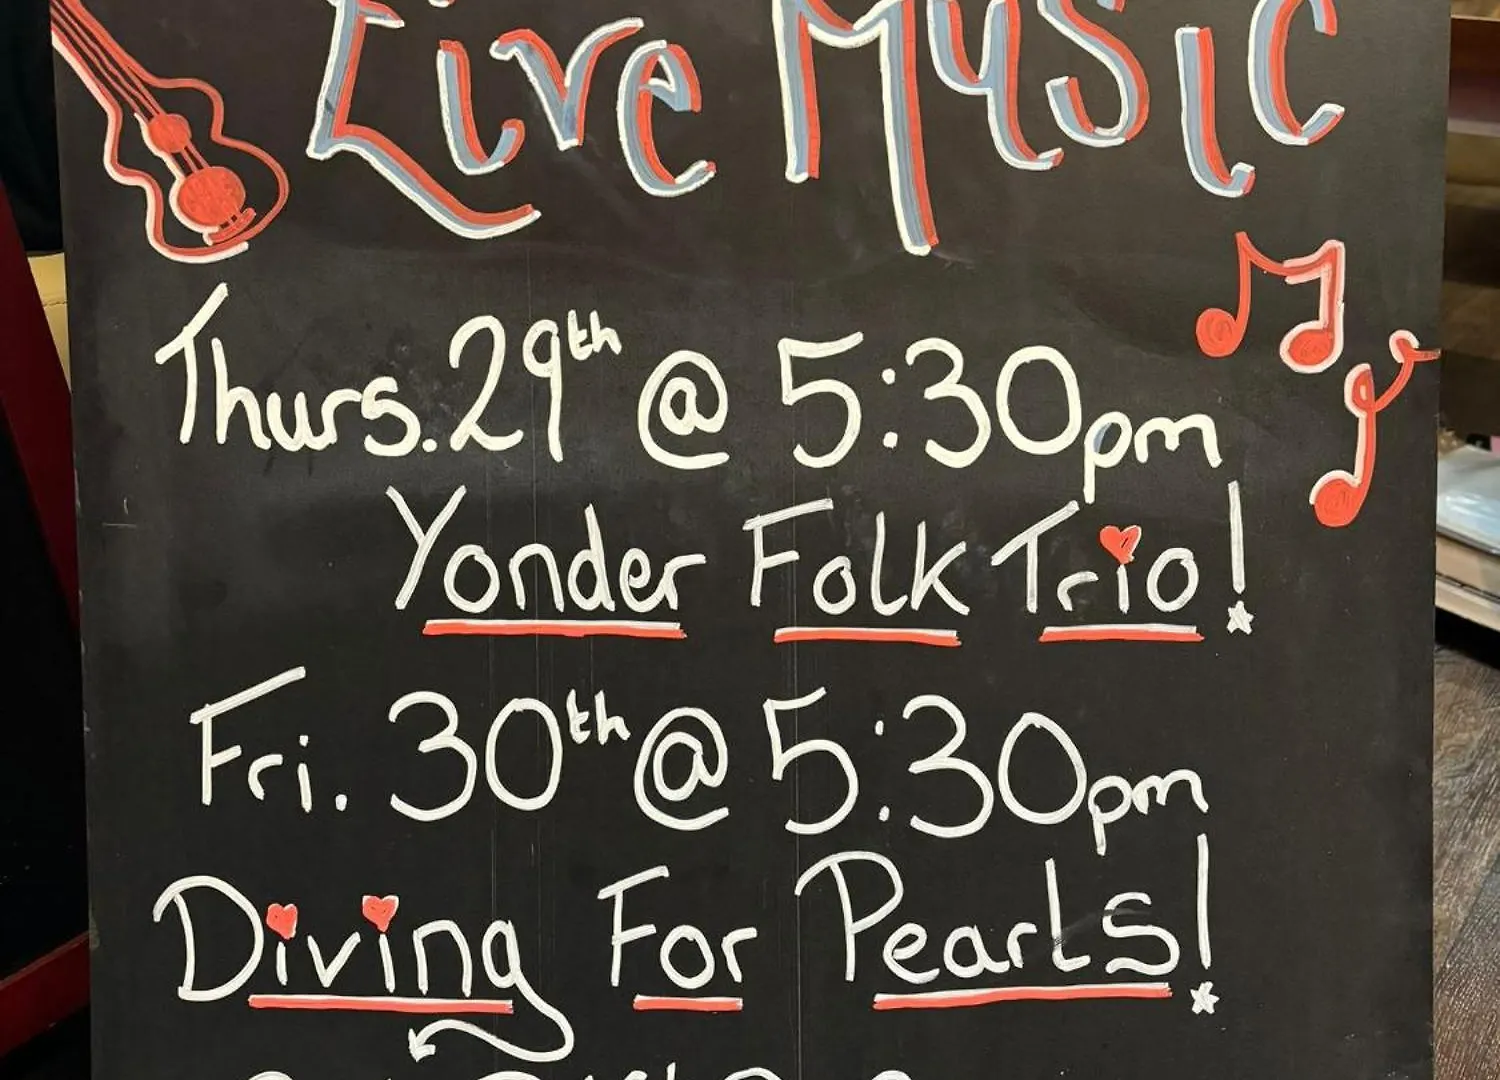 Live Music
Thurs. 29th @ 5:30pm
Yonder Folk Trio!
Fri. 30th @ 5:30pm
Diving For Pearls!